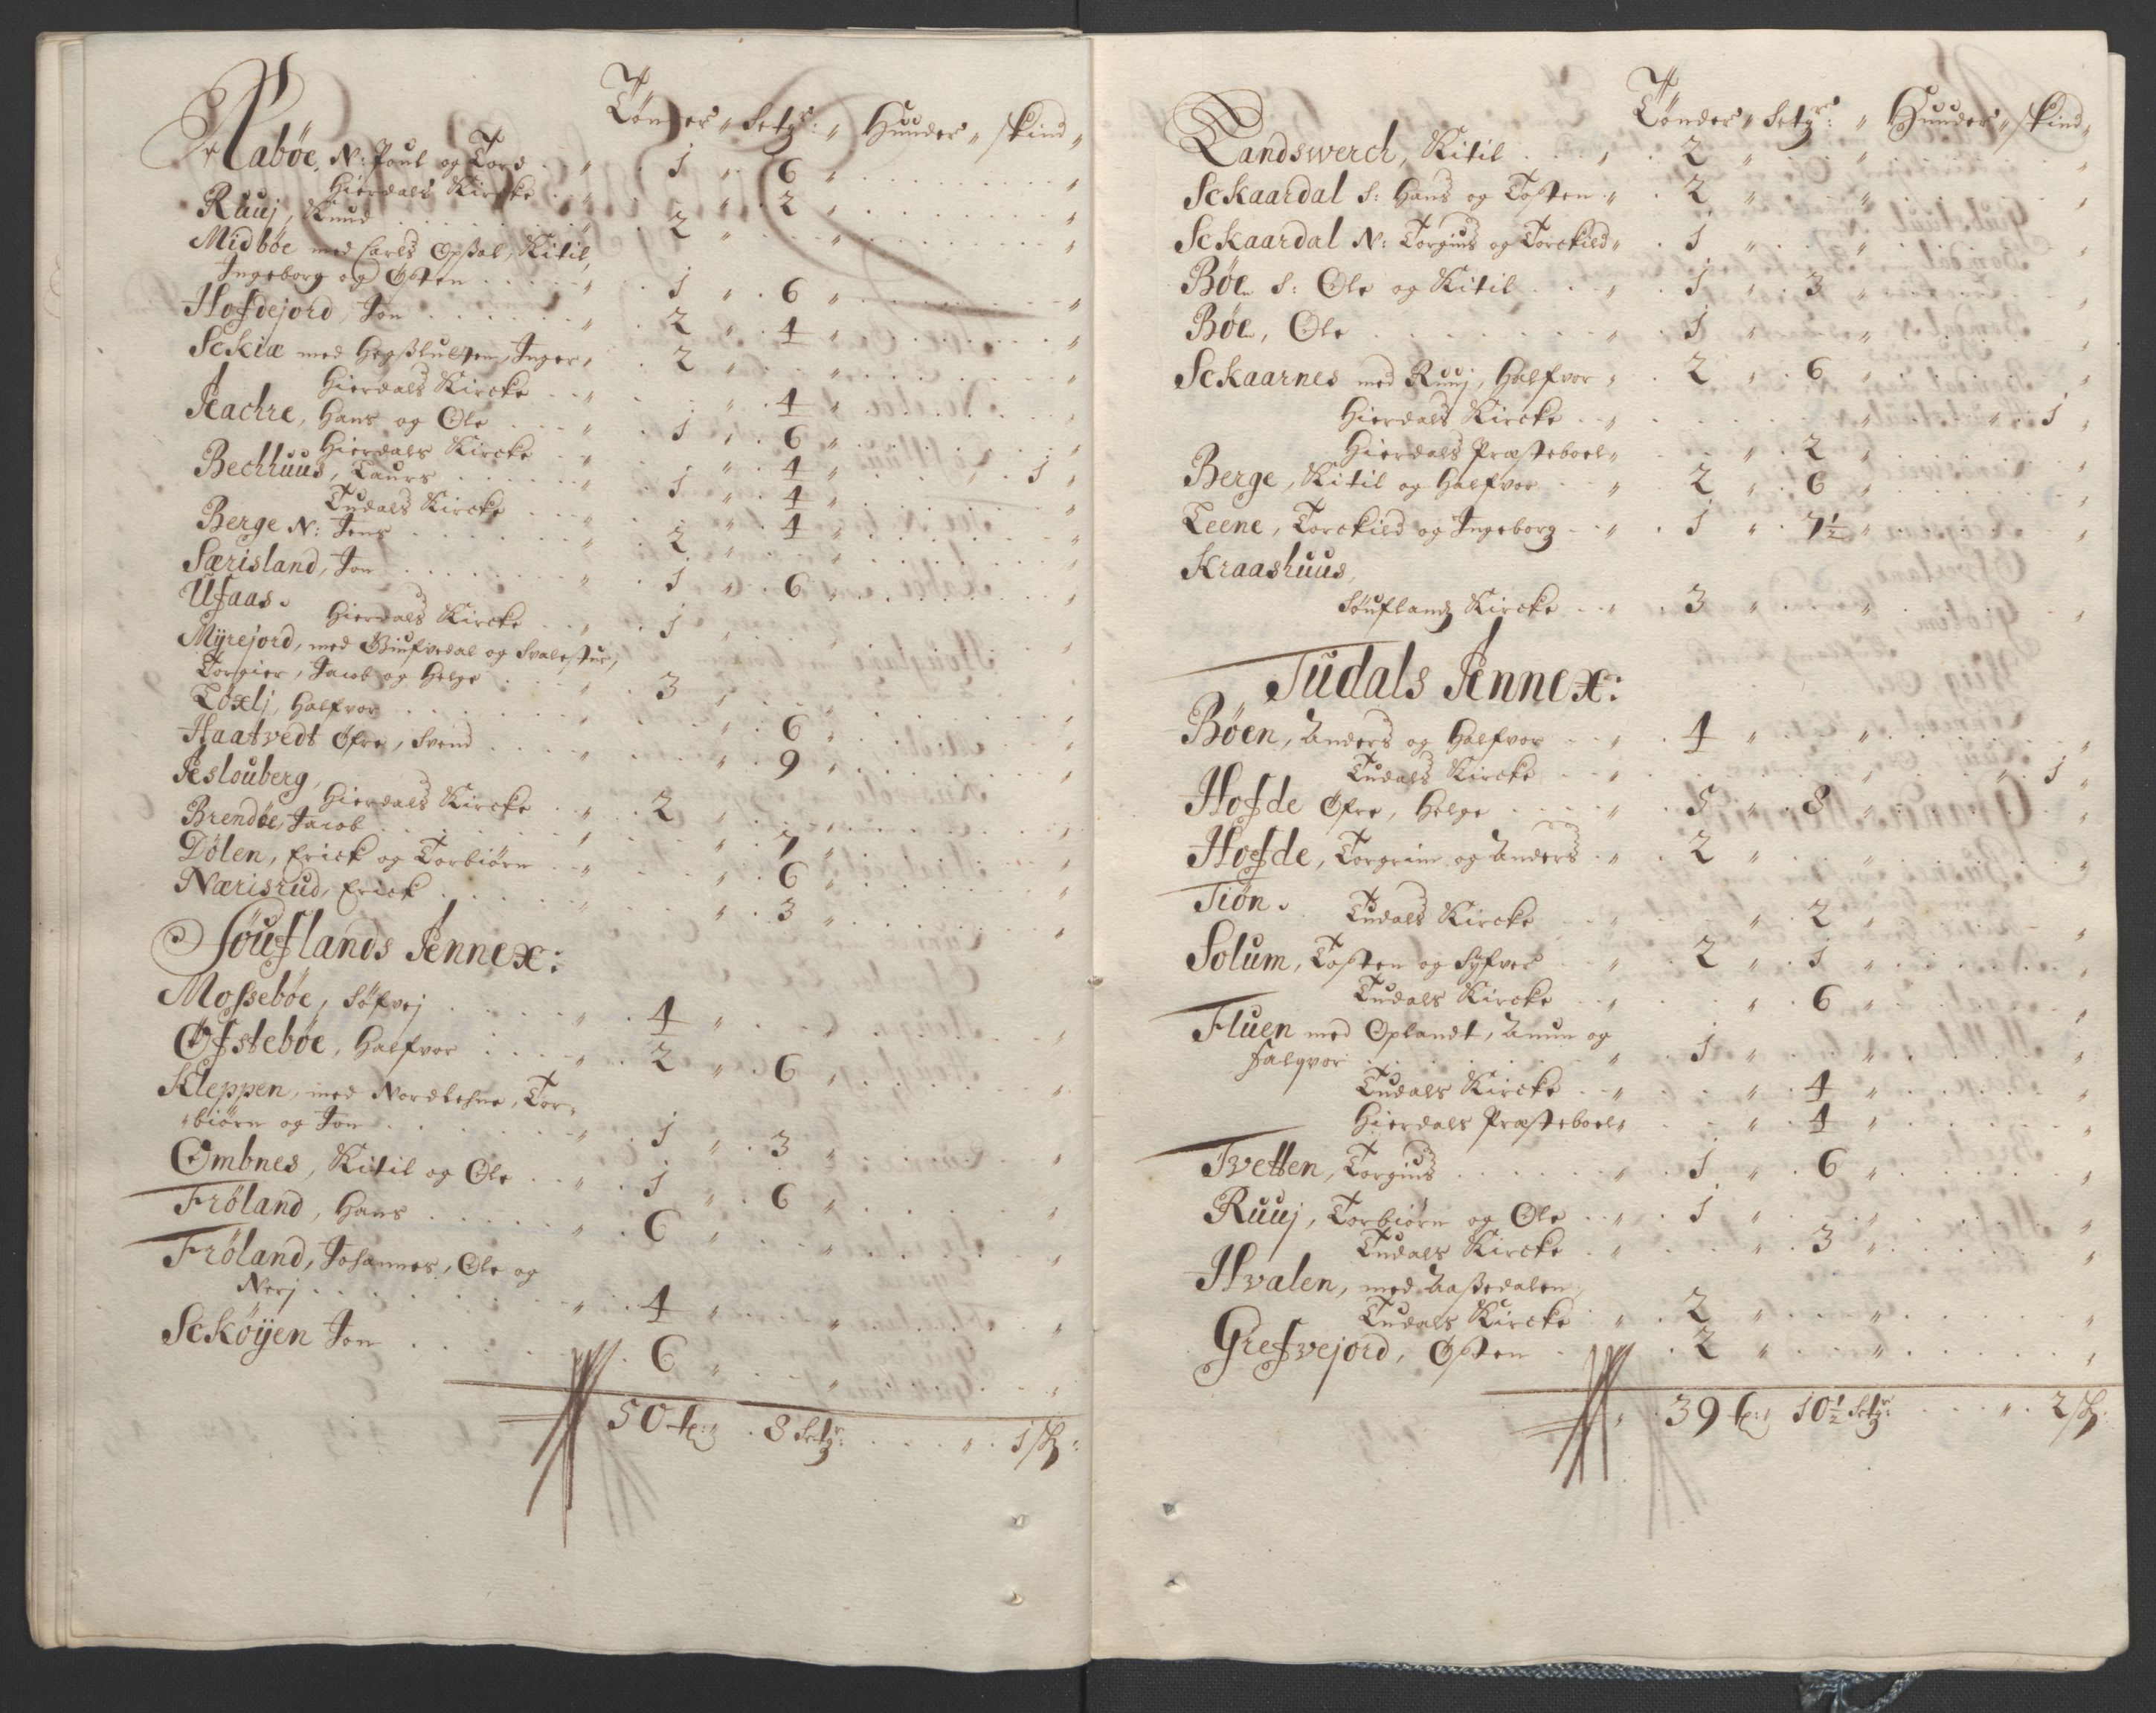 Tønder " Setgr: " Huuder " skind "
Aabøe, N: Poul og Tord . . " . 1 " . 6 "
Hierdals Kircke . . " . . " . 2 "
Ruuj, Knud . . . " . 2 "
Midbøe med Carls Opsal, Kitil,
Ingeborg og Østen . . . " . 1 " . 6 "
Hofdejord, Jon . . . " . 2 " . 4 "
Sckiæ med Hegsluften, Inger, . 2 "
Hierdals Kircke . . " . . " . 4 "
Aachre, Hans og Ole . . . " . 1 " . 6 "
Hierdals Kircke . . " . . " . 4 " . . " . 1 "
Bechhuus, Laurs . . . " . 1 " . 4 "
Tudals Kircke . . " . . " . 4 "
Berge N: Jens . . . " . 2 "
Særisland, Jon . . . " . 1 " . 6 "
Ufaas.
Hierdals Kircke . . " . 1 "
Myrejord, med Giufvedal og Svalestur,
Torgier, Jacob og Helge . . . " . 3 "
Løxlj, Halfvor . . . " . . " . 6 "
Haatvedt Øfre, Svend . . . " . . " . 9 "
Aaslouberg,
Hierdals Kircke . . " . 2 "
Brendøe, Jacob . . . " . . " . 7 "
Dølen, Erick og Torbiørn . . " . . " . 6 "
Nærisrud, Erick . . . " . . " . 3 "
Søuflands Annex:
Mossebøe, Søfvej . . . " . 4 "
Øfstebøe, Halfvor . . . " . 2 " . 6 "
Kleppen, med Nordlehne, Tor-
biørn og Jon . . . " . 1 " . 3 "
Ombnes, Kitil og Ole . . " . 1 " . 6 "
Frøland, Hans . . . " . 6 "
Frøland, Johannes, Ole og
Nerj . . . " . 4 "
Sckøyen Jon . . . 6 "
50 t: " . 8 Setgr: . . . " . 1 sk:
Tønder " Setgr: " Huuder " skind "
Landswerch, Kitil . . . " . 2 "
Sckaardal S: Hans og Tosten " . 2 "
Sckaardal N: Torgius og Torckild " . 1 "
Bøe S: Ole og Kitil . . . " . 1 " . 3 "
Bøe, Ole . . . " . 1 "
Sckaarnes med Ruuj, Halfvor " . 2 " . 6 "
Hierdals Kircke . . " . . . " . . " . 1 "
Hierdals Præsteboel " . . " . 2 "
Berge, Kitil og Halfvor . . " . 2 " . 6 "
Leene, Torckild og Ingeborg . . " . 1 " . 7½ "
Kraashuus,
Søuflands Kircke . . " . 3 "
Tudals Annex:
Bøen, Anders og Halfvor . . " . 4 "
Tudals Kircke . . " . . . " . . " . 1 "
Hofde Øfre, Helge . . . " . 5 " . 8 "
Hofde, Torgrim og Anders . " . 2 "
Tiøn.
Tudals Kircke . . " . . " . 2 "
Solum, Tosten og Syfver . . " . 2 " . 1 "
Tudals Kircke . . " . . " . 6 "
Fluen med Oplandt, Anun og
Salgvor . . . " . 1 "
Tudals Kircke . . " . . " . 4 "
Hierdals Præsteboel " . . " . 4 "
Tvetten, Torgius . . . " . 1 " . 6 "
Ruuj, Torbiørn og Ole . . " . 1 "
Tudals Kircke . . " . . " . 3 "
Hvalen, med Aassedalen,
Tudals Kircke . " . 2 "
Grefvejord, Østen . . . 2 "
" . 39 t: 10½ Setgr: . . . " . 2 sk: